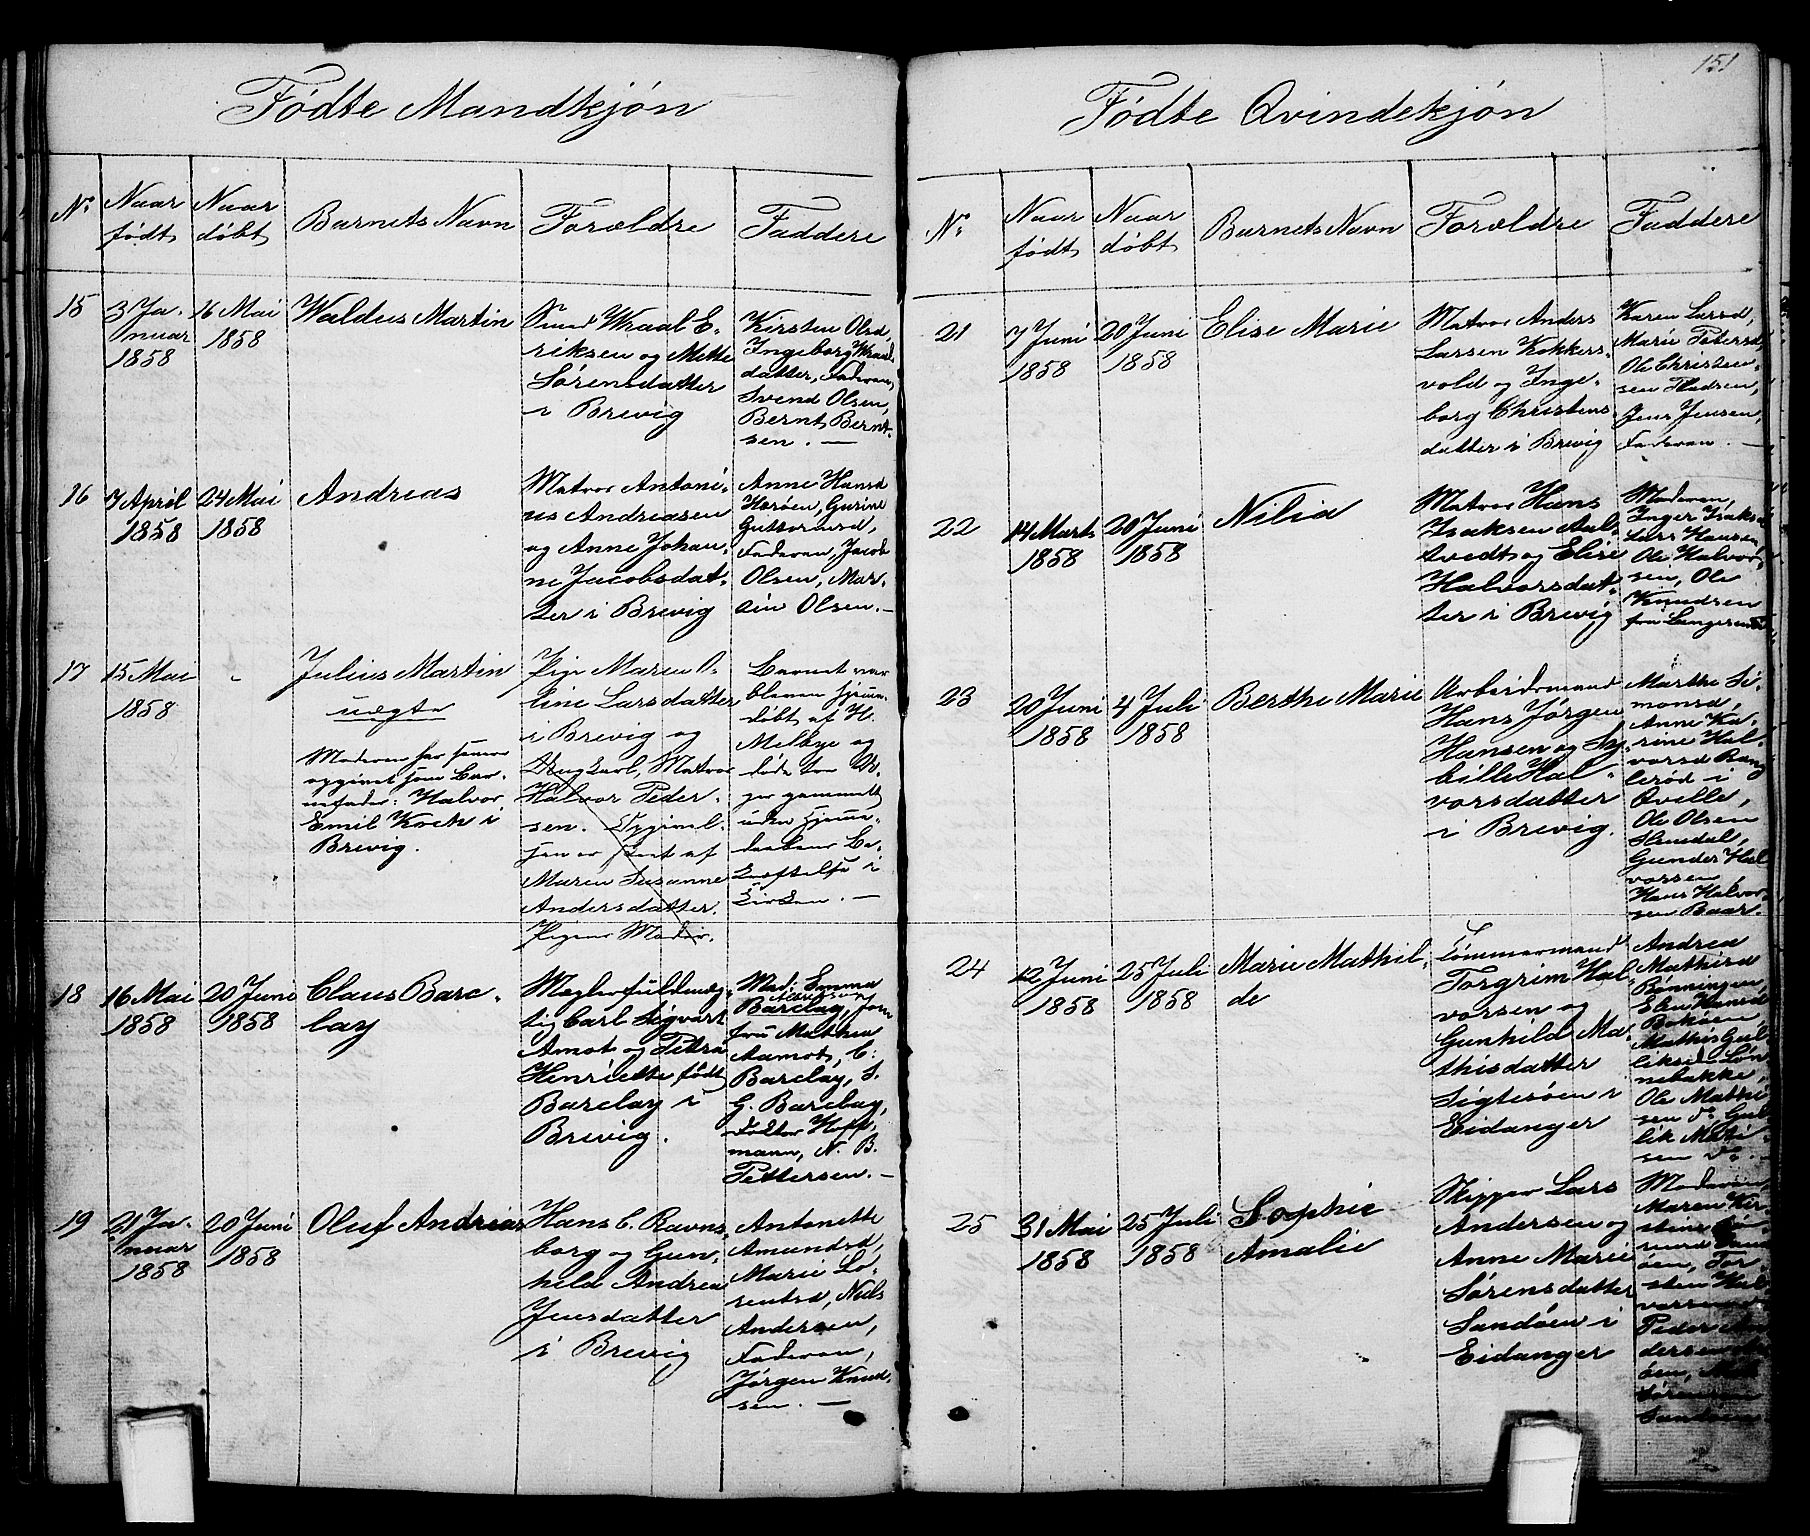 151
Fødte Mandkjøn
No
Naar født
Naar døbt
Barnets Navn
Forældre
Faddere
15
3 Ja-
nuar
1858
16 Mai
1858
Waldus Martin
Wraal E-
riksen og Mette
Sørensdatter
i Brevig
Kirsten Olsd,
Ingeborg Wraals
datter, Faderen,
Svend Olsen,
Bernt Bernt-
sen. —
16
7 April
1858
24 Mai
1858
Andreas
Matros Antoni-
us Andreasen
og Anne Johan-
ne Jacobsdat-
ter i Brevig
Anne Hansd
Gurine
Guttormsd,
Faderen, Jacob
Olsen, Mar-
Olsen. —
17
15 Mai
1858
Julius Martin
uægte
Moderen har senere
opgivet som Bar-
nefader: Halvor
Emil Koch i
Brevig.
Pige Maren O-
line Larsdatter
i Brevig og
Ungkarl, Matros
Halvor Peder-
sen. Opgivel-
sen er skeet af
Maren Susanne
Andersdatter,
Pigens Moder.
Barnet var
bleven hjem-
døbt af H.
Melbye og
døde tre U-
ger gammelt
uden Hjem-
daabens Be-
kræftelse i
Kirken. —
18
16 Mai
1858
20 Juni
1858
Claus Barc-
lay
Mæglerfuldmæg-
tig Carl Sigvart
Amot og Petra
Henriette født
Barclay i
Brevig.
Mad: Emma
Barclay, Jom-
fru Mathea
Aamot, C:
Barclay, S.
G. Barclay,
Doktor Hoff-
mann, N. B.
Pettersen. —
19
21 Ja-
nuar
1858
20 Juni
1858
Oluf Andreas
Hans C. Ravns-
borg og Gun-
hild Andrea
Jensdatter
i Brevig
Antonette
Amundsd,
Marie Lo-
rentsd, Niels
Andersen,
Faderen,
Jørgen Knud-
sen. —
Fødte Qvindekjøn
No
Naar født
Naar døbt
Barnets Navn
Forældre
Faddere
21
7 Juni
1858
20 Juni
1858
Elise Marie
Matros Anders
Larsen Kokkers-
vold og Inge-
borg Christens
datter i Brevig
Karen Larsd,
Marie Petersd,
Ole Christen-
sen
Jens Jensen,
Faderen. —
22
14 Marts
1858
20 Juni
1858
Nilia
Matros Hans
Isaksen Aal-
tvedt og Elise
Halvorsdat-
ter i Brevig
Moderen,
Inger Isaksd,
Lars Hansen,
Ole Halvor-
sen, Ole
Knudsen
fra
23
20 Juni
1858
4 Juli
1858
Berthe Marie
Arbeidsmand
Hans Jørgen
Hansen og Sy-
bille Hal-
vorsdatter
i Brevig.
Marthe Si-
monsd,
Anne Ka-
rine Hal-
vorsd Rang-
lerød i
Qvelle,
Ole Olsen
Gunder Hal-
vorsen
Hans Halvor-
sen Baar.
24
12 Juni
1858
25 Juli
1858
Marie Mathil-
de
Tømmermand
Torgrim Hal-
vorsen og
Gunhild Ma-
thisdatter
Sigtesøen i
Eidanger
Andrea
Mathisd
Elen Hansd
Mathis Gul-
liksen Løn-
nebakke,
Ole Mathi-
sen do Gul-
lik Mathi-
sen do. —
25
31 Mai
1858
25 Juli
1858
Sophie
Amalie
Skipper Lars
Andersen og
Anne Marie
Sørensdatter
Sandøen i
Eidanger
Moderen,
Maren Kir-
stine
øen, Tor-
sten Hal-
vorsen
Peder An-
dersen
øen,
Sørensen
Sandøen